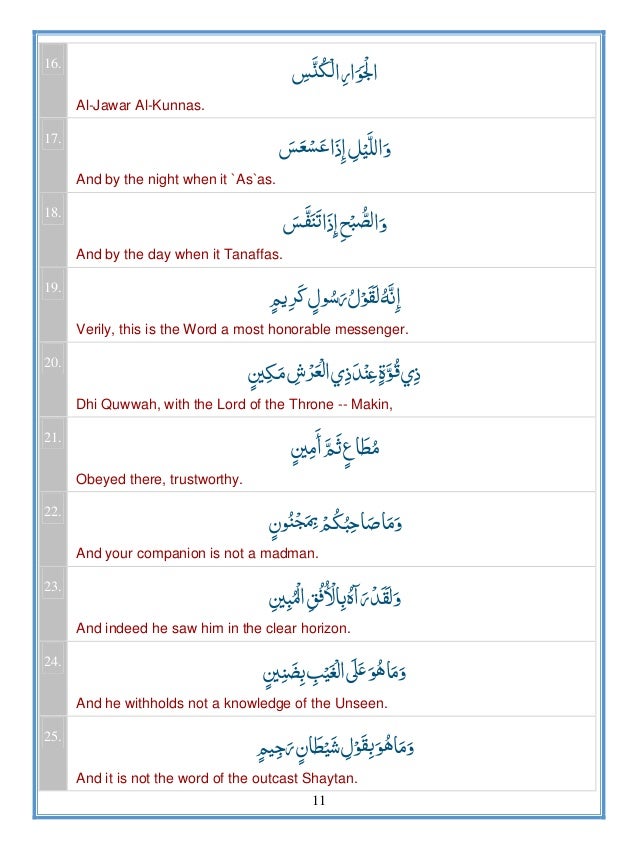 16.
الْجَوَارِ الْكُنَّسِ
Al-Jawar Al-Kunnas.
17.
وَاللَّيْلِ إِذَا عَسْعَسَ
And by the night when it `As`as.
18.
وَالصُّبْحِ إِذَا تَنَفَّسَ
And by the day when it Tanaffas.
19.
إِنَّهُ لَقَوْلُ رَسُولٍ كَرِيمٍ
Verily, this is the Word a most honorable messenger.
20.
ذِي قُوَّةٍ عِنْدَ ذِي الْعَرْشِ مَكِينٍ
Dhi Quwwah, with the Lord of the Throne -- Makin,
21.
مُطَاعٍ ثَمَّ أَمِينٍ
Obeyed there, trustworthy.
22.
وَمَا صَاحِبُكُمْ بِمَجْنُونٍ
And your companion is not a madman.
23.
وَلَقَدْ رَآهُ بِالْأُفُقِ الْمُبِينِ
And indeed he saw him in the clear horizon.
24.
وَمَا هُوَ عَلَى الْغَيْبِ بِضَنِينٍ
And he withholds not a knowledge of the Unseen.
25.
وَمَا هُوَ بِقَوْلِ شَيْطَانٍ رَجِيمٍ
And it is not the word of the outcast Shaytan.
11